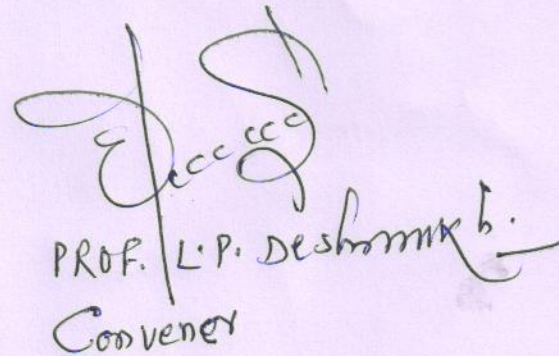 PROF. L.P. Deshmukh.
Convener